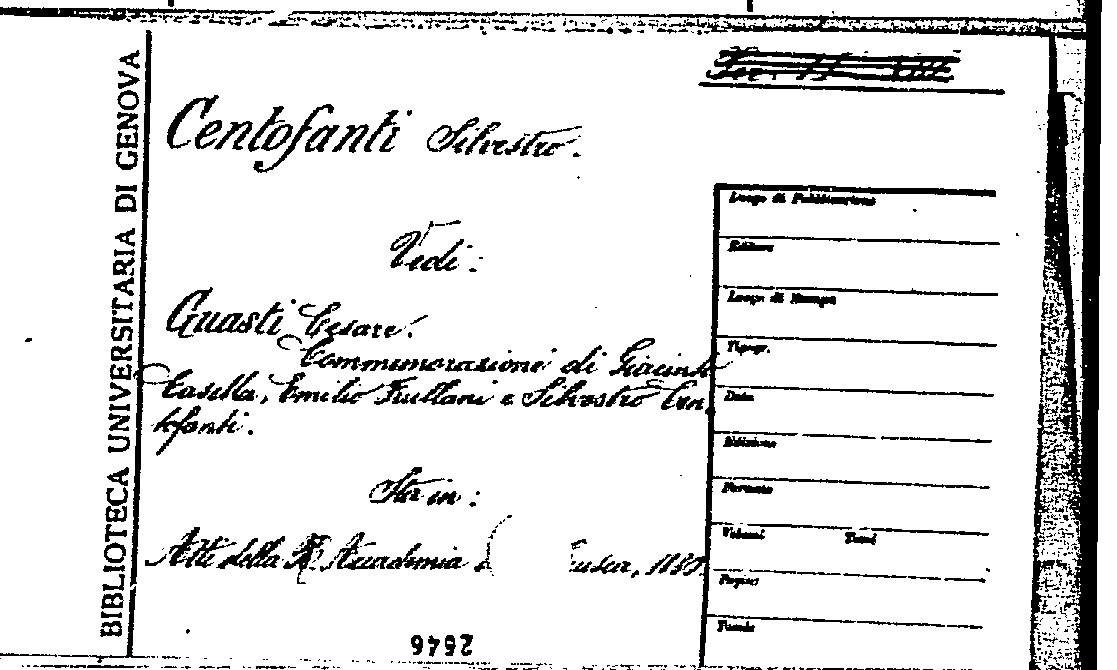 BIBLIOTECA UNIVERSITARIA DI GENOVA
Centofanti Silvestro.
Vedi:
Guasti Cesare.
Commemorazioni di Giacinto
Casella, Emilio Frullani e Silvestro Cen,
tofanti.
Sta in:
Atti della R. Accademia
2646
Luogo di Pubblicazione
Editore
Luogo di Stampa
Tipogr.
Data
Edizione
Formato
Volumi Tomi
Pagine
Fondo